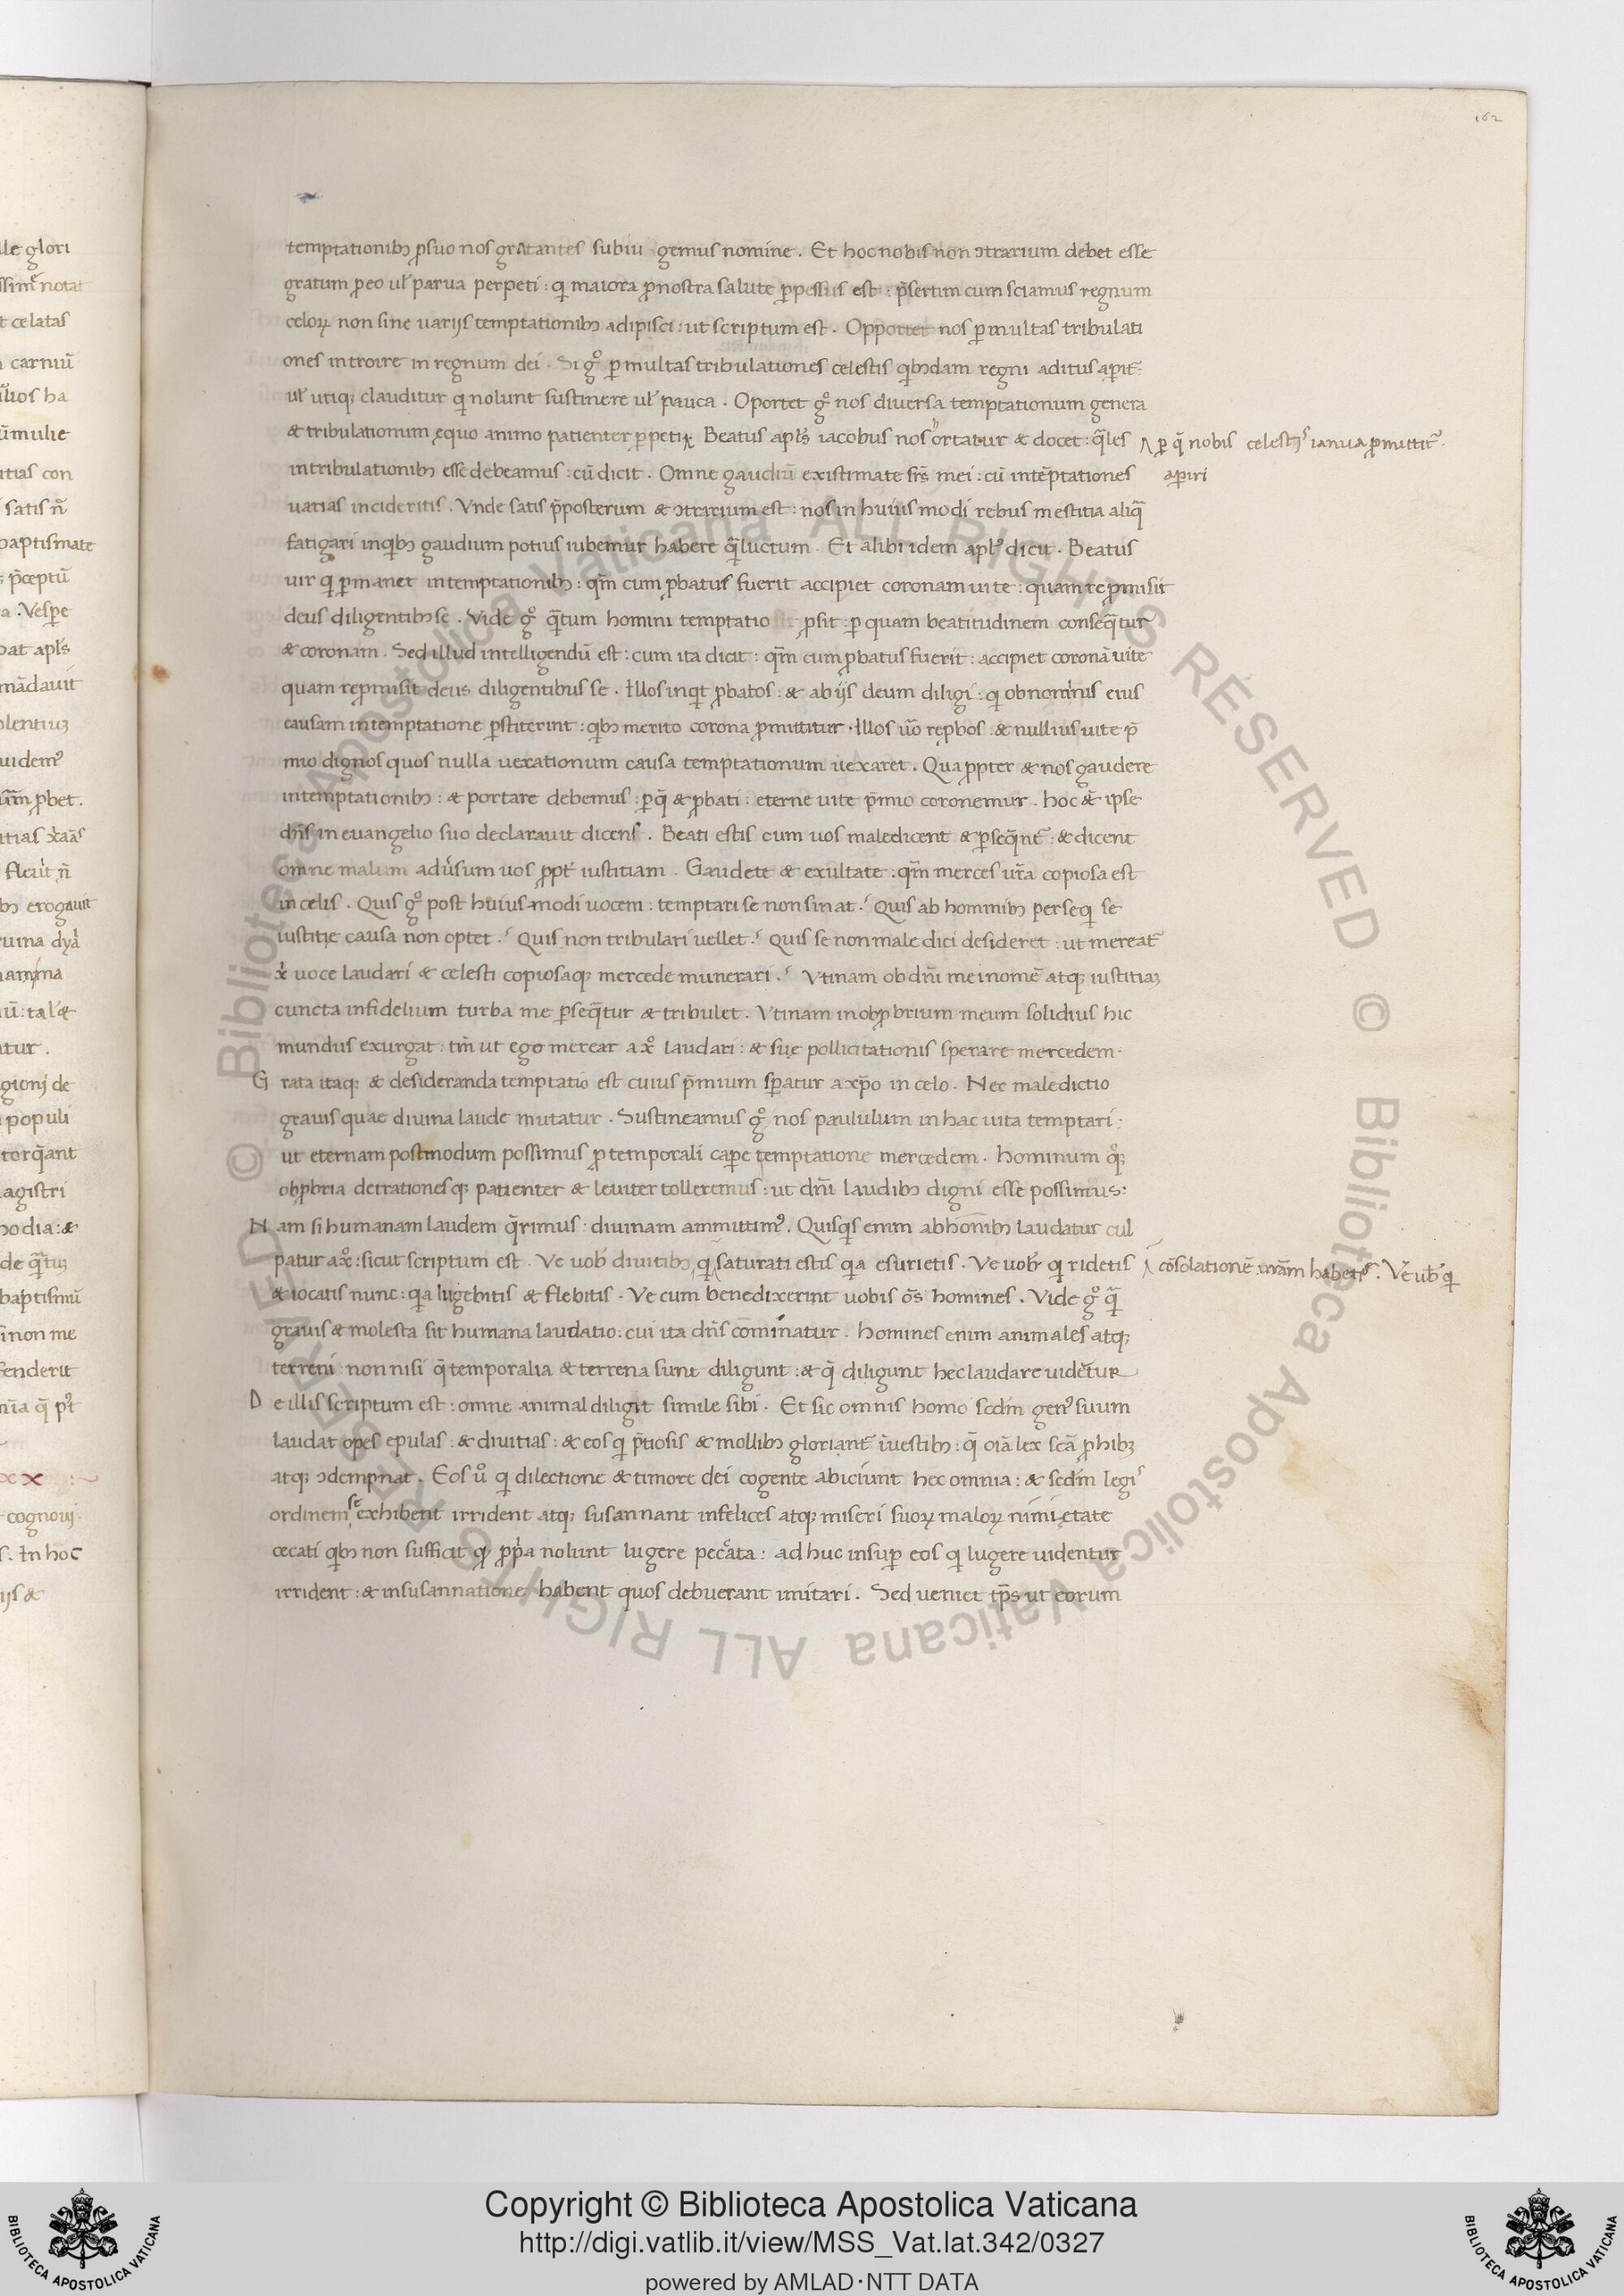 162
temptationibꝫ ꝓ suo nos gratantes subiu gemus nomine . Et hoc nobis non ↄtrarium debet esse
gratum ꝓ eo ul̛ parua perpeti : qi maiora ꝓ nostra salute ꝑpessus est : p̄sertim cum sciamus regnum
celoꝝ non sine uarijs temptationibꝫ adipisci : ut scriptum est . Opportet nos ꝑ multas tribulati
ones introire in regnum dei . Si gͦ ꝑ multas tribulationes celestis qibꝫdam regni aditus aꝑit̄ :
ul̛ utiqꝫ clauditur qi nolunt sustinere ul̛ pauca . Oportet gͦ nos diuersa temptationum genera
& tribulationum ęquo animo patienter ꝑpeti Beatus apl̄s iacobus nos hortatur & docet : q̄les
ꝑ q̄ nobis celestis ianua ꝓmittit̄ .
aꝑiri
in tribulationibꝫ esse debeamus : cū dicit . Omne gaudiū existimate fr̄s mei : cū in tēptationes
uarias incideritis . Vnde satis p̄posterum & ↄtrarium est : nos in huius modi rebus mestitia aliq̄
fatigari in qibꝫ gaudium potius iubemur habere q̄ luctum . Et alibi idem apl̛s dicit . Beatus
uir qi ꝑmanet in temptationibꝫ : qm̄ cum ꝓbatus fuerit accipiet coronam uite : quam reꝓmisit
deus diligentibꝫ se . Vide gͦ q̄tum homini temptatio ꝓsit : ꝑ quam beatitudinem conseq̄tur
& coronam . Sed illud intelligendū est : cum ita dicit : qm̄ cum ꝓbatus fuerit : accipiet coronā uite
quam reꝓmisit deus diligentibus se . Illos inqt ꝓbatos : & ab ijs deum diligi : qi ob nominis eius
causam in temptatione ꝑstiterint : qibꝫ merito corona ꝓmittitur . Illos u̅o reꝓbos & nullius uite p̄
mio dignos quos nulla uexationum causa temptationum uexaret . Qua ꝓpter & nos gaudere
in temptationibꝫ : & portare debemus : ꝑ q̄ & ꝓbati : eterne uite p̄mio coronemur . hoc & ipse
dn̄s in euangelio suo declarauit dicens . Beati estis cum uos maledicent & ꝑseq̄nt̄ : & dicent
omne malum adu̅sum uos ꝓpt̄ iustitiam . Gaudete & exultate : qm̄ merces ur̄a copiosa est
in celis . Quis gͦ post huius modi uocem : temptari se non sinat ? Quis ab hominibꝫ perseqi se
iustitie causa non optet ? Quis non tribulari uellet ? Quis se non male dici desideret : ut mereat̄
xi uoce laudari & celesti copiosaqꝫ mercede munerari ? Vtinam ob dn̄i mei nomē atqꝫ iustitiaꝫ
cuncta infidelium turba me ꝑseq̄tur & tribulet . Vtinam in obꝓbrium meum solidius hic
mundus exurgat : tm̄ ut ego merear a xͦ laudari : & suę pollicitationis sperare mercedem .
Grata itaqꝫ & desideranda temptatio est cuius p̄mium sꝑatur a xp̄o in celo . Nec maledictio
grauis quae diuina laude mutatur . Sustineamus gͦ nos paululum in hac uita temptari :
ut eternam postmodum possimus ꝓ temporali caꝑe temptatione mercedem . hominum qͦꝫ
obꝓbria detrationesqꝫ patienter & leuiter tolleremus : ut dn̄i laudibꝫ digni esse possimus :
Nam si humanam laudem q̄rimus : diuinam ammittimꝰ . Quisqis enim ab hominibꝫ laudatur cul
patur a xͦ : sicut scriptum est . Ve uob̄ diuitibꝫ , qi saturati estis qia esurietis . Ve uob̄ qi ridetis
cōsolationē urām habetis . Ve ub̄ qi
& iocatis nunc : qia lugebitis & flebitis . Ve cum benedixerint uobis ōs homines . Vide gͦ q̄
grauis & molesta sit humana laudatio : cui ita dn̄s cominatur . homines enim animales atqꝫ
terreni : non nisi q̄ temporalia & terrena sunt diligunt : & q̄ diligunt hec laudare uidētur
De illis scriptum est : omne animal diligit simile sibi . Et sic omnis homo scdm̄ genꝰ suum
laudat opes epulas : & diuitias : & eos qi p̄tiosis & mollibꝫ gloriant̄ uestibꝫ : q̄ oīa lex scā ꝓhibꝫ
atqꝫ ↄdempnat . Eos uͦ qi dilectione & timore dei cogente abiciunt hec omnia : & scdm̄ legis
ordinem se exhibent irrident atqꝫ susannant infelices atqꝫ miseri suoꝝ maloꝝ nimietate
cecati qibꝫ non sufficit qꝫ ꝓpa nolunt lugere peccata : ad huc insuꝑ eos qi lugere uidentur
irrident : & in susannatione habent quos debuerant imitari . Sed ueniet tp̄s ut eorum
Copyright © Biblioteca Apostolica Vaticana
http://digi.vatlib.it/view/MSS_Vat.lat.342/0327
powered by AMLAD·NTT DATA
© Biblioteca Apostolica Vaticana ALL RIGHTS RESERVED © Biblioteca Apostolica Vaticana ALL RIGHTS RESERVED
BIBLIOTECA APOSTOLICA VATICANA
BIBLIOTECA APOSTOLICA VATICANA